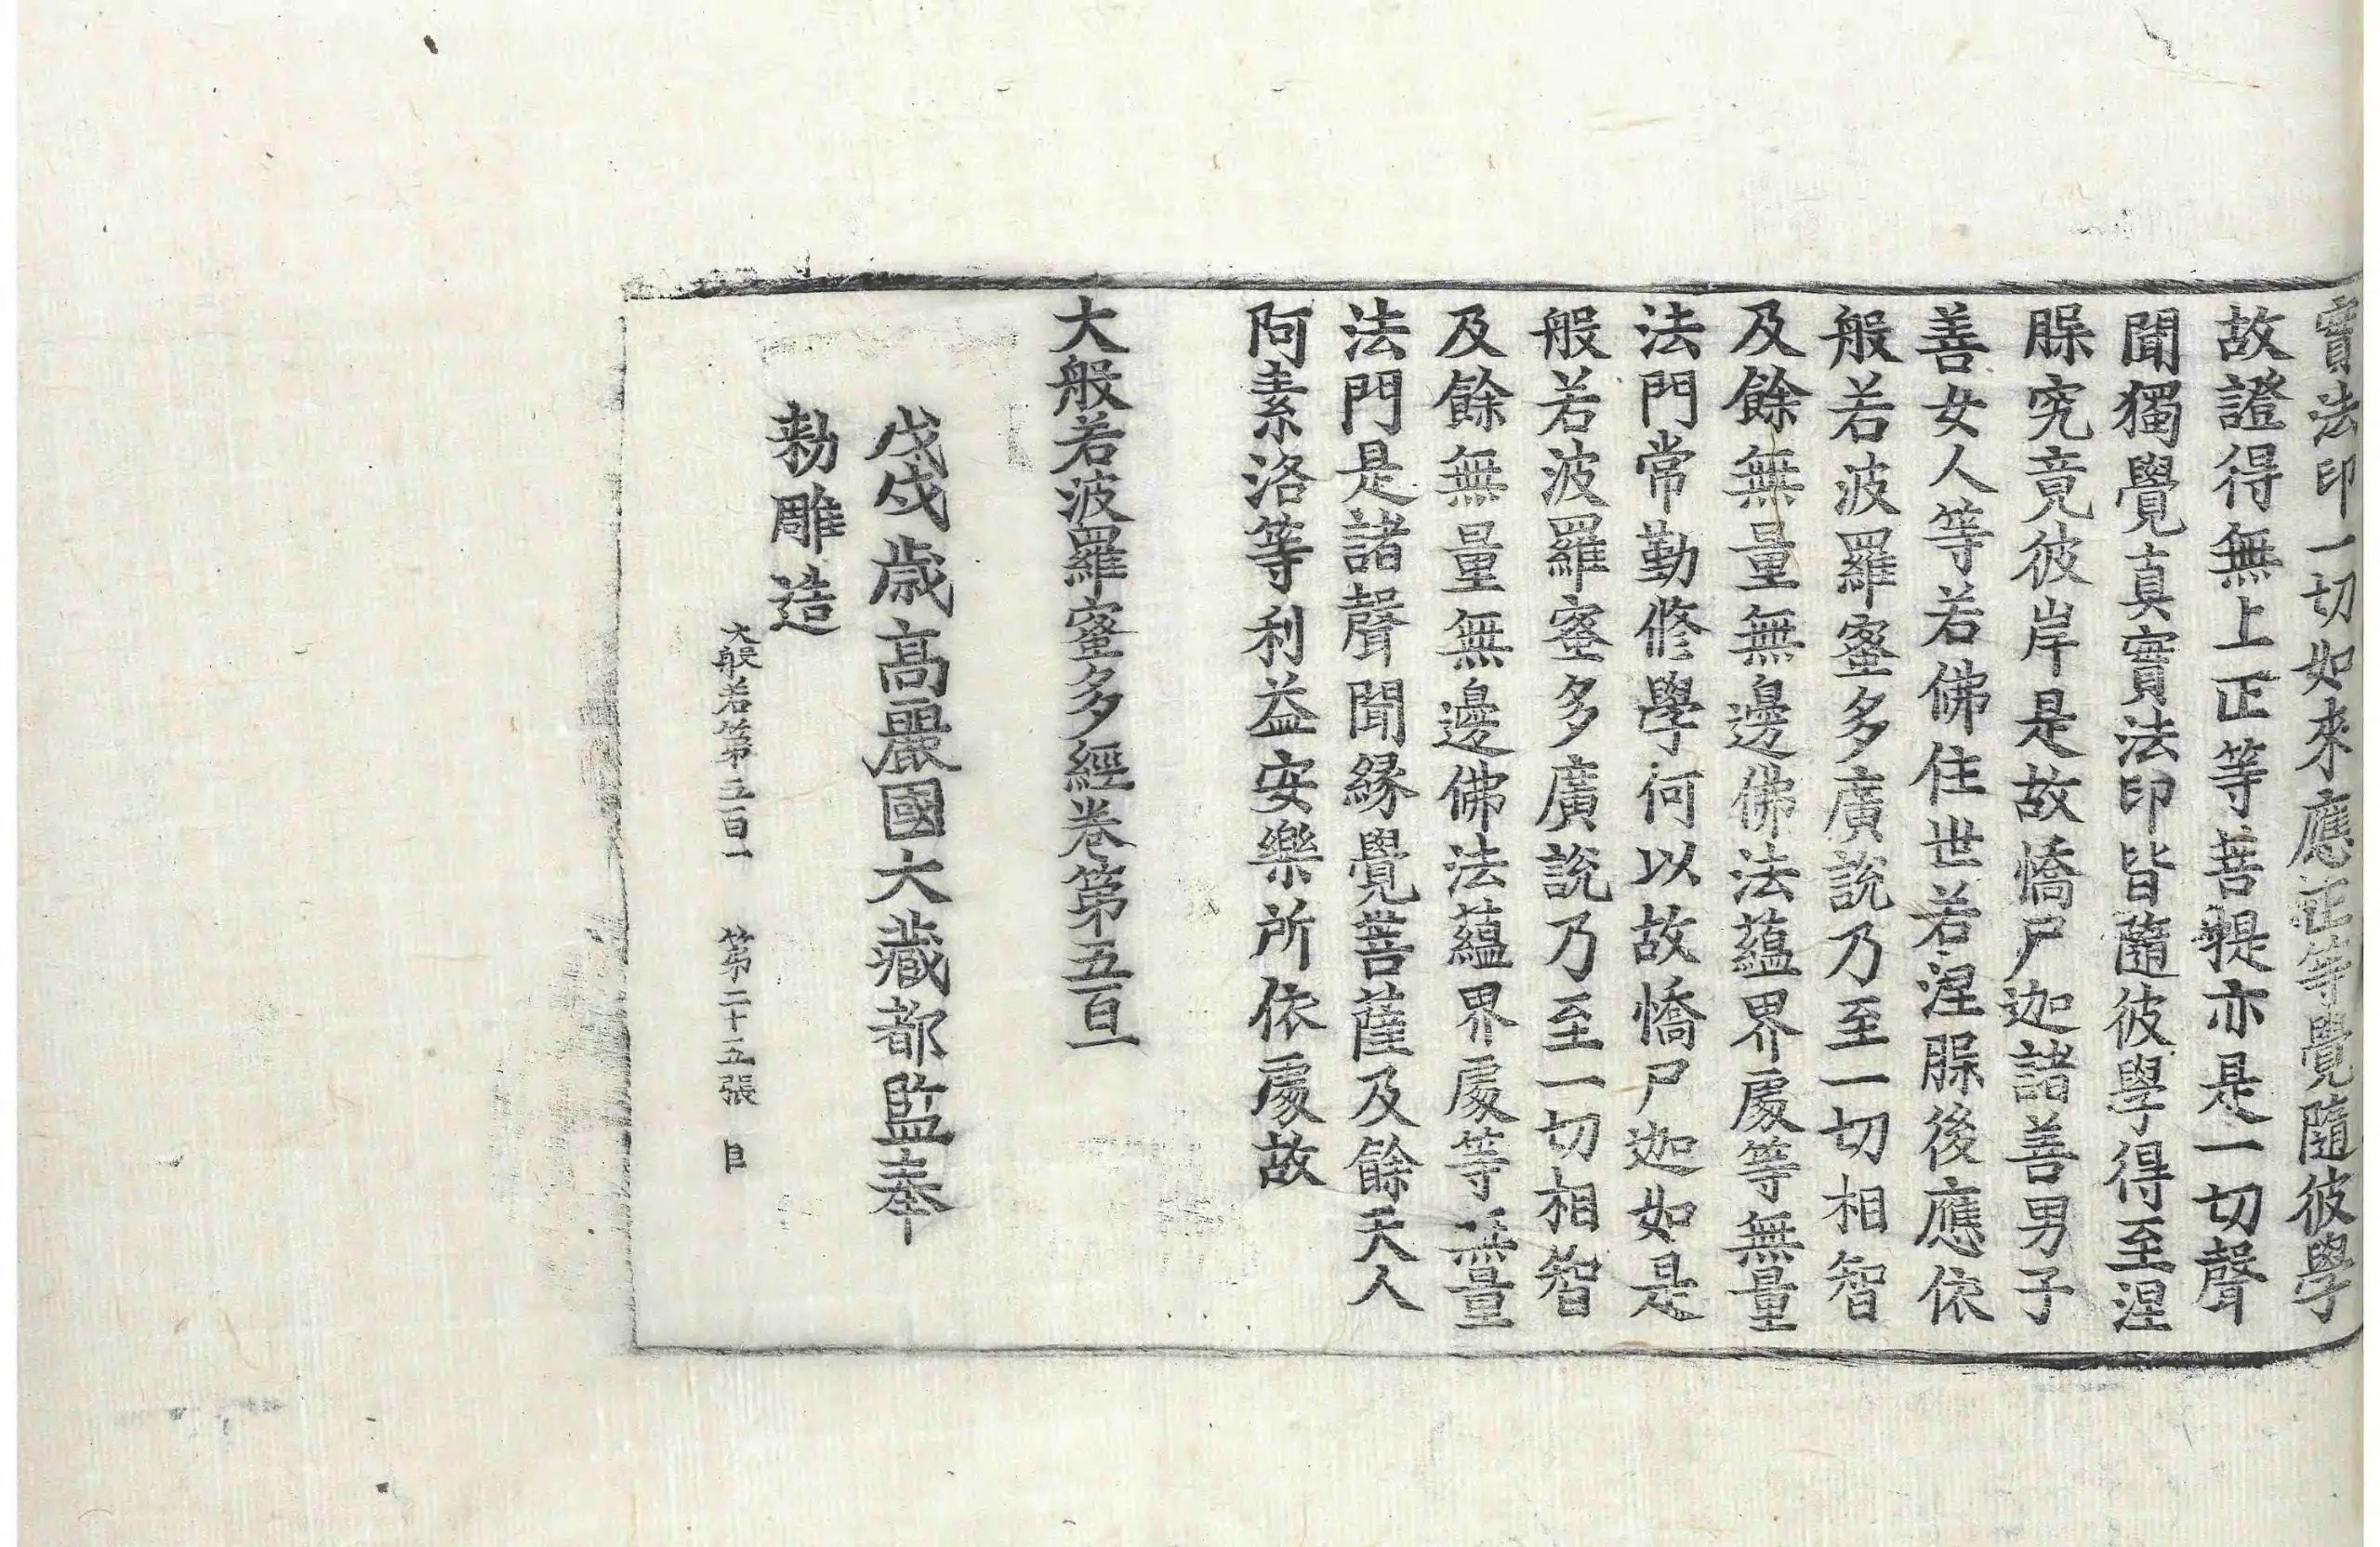 實法印一切如來應正等覺隨彼學
故證得無上正等菩提亦是一切聲
聞獨覺真實法印皆隨彼學得至涅
槃究竟彼岸是故憍尸迦諸善男子
善女人等若佛住世若涅槃後應依
般若波羅蜜多廣說乃至一切相智
及餘無量無邊佛法蘊界處等無量
法門常勤修學何以故憍尸迦如是
般若波羅蜜多廣說乃至一切相智
及餘無量無邊佛法蘊界處等無量
法門是諸聲聞緣覺菩薩及餘天人
阿素洛等利益安樂所依處故
大般若波羅蜜多經卷第五百一
戊戌歲高麗國大藏都監奉
勅雕造
大般若第五百一 第二十五張